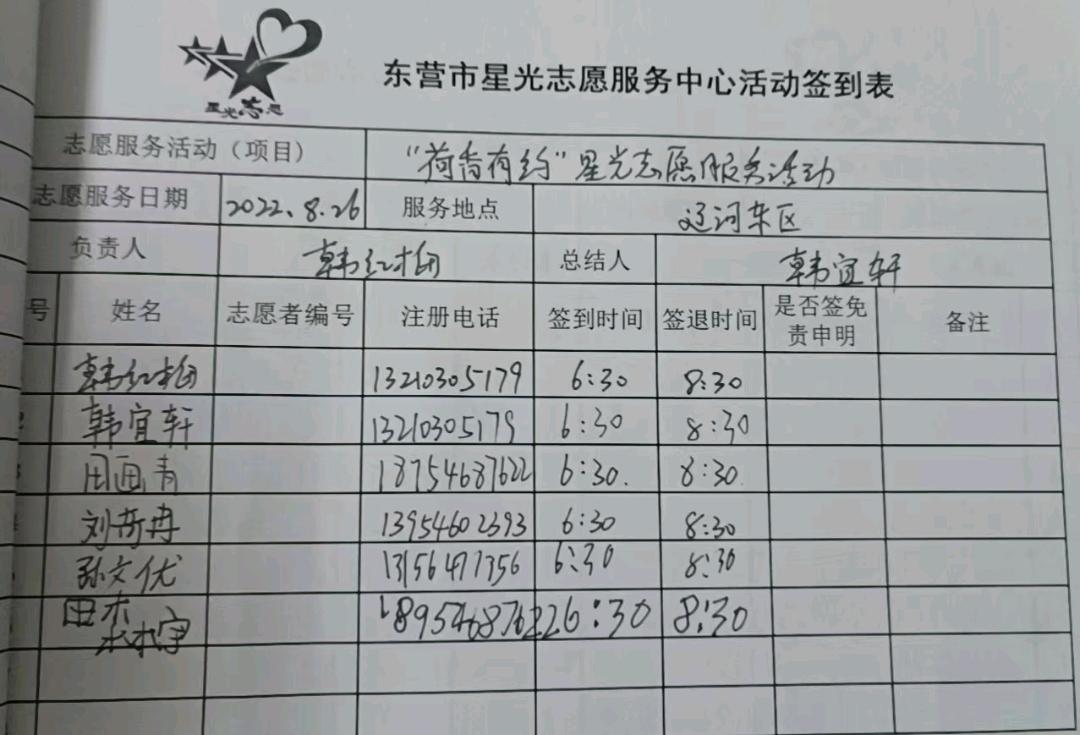 星光志愿
东营市星光志愿服务中心活动签到表
志愿服务活动（项目） “荷香有约”星光志愿服务活动
志愿服务日期 2022.8.26 服务地点 辽河东区
负责人 韩红梅 总结人 韩宜轩
号 姓名 志愿者编号 注册电话 签到时间 签退时间 是否签免责申明 备注
韩红梅 13210305179 6:30 8:30
2 韩宜轩 13210305179 6:30 8:30
3 田画青 18754687622 6:30. 8:30
刘 冉 13954602393 6:30 8:30
孙文优 13156477356 6:30 8:30
田 18954687622 6:30 8:30